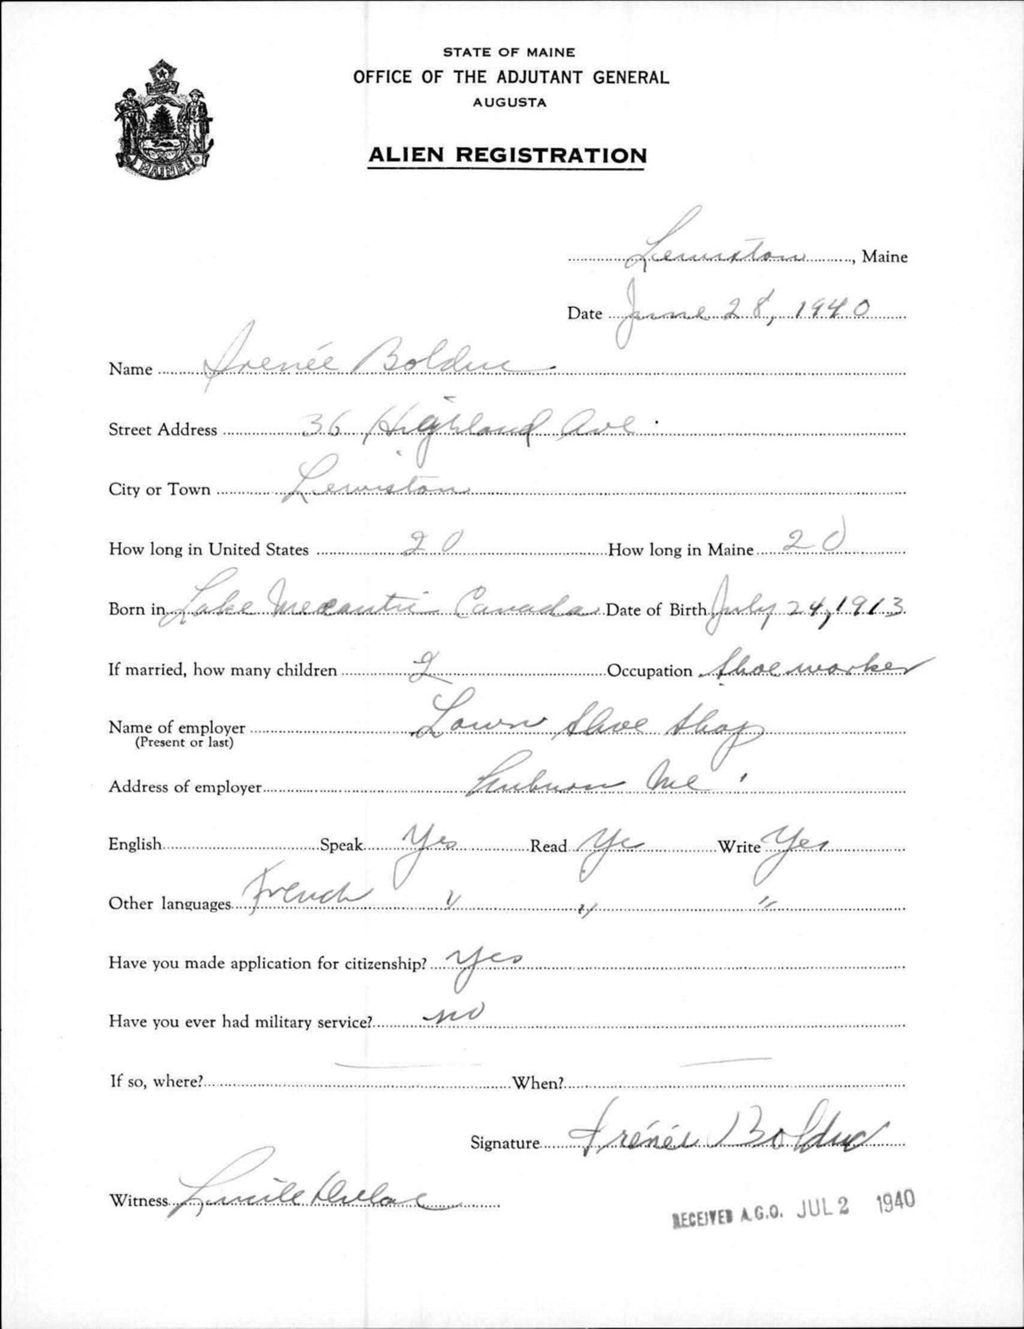 STATE OF MAINE
OFFICE OF THE ADJUTANT GENERAL
AUGUSTA
ALIEN REGISTRATION
Lewiston, Maine
Date June 28, 1940
Name Irenée Bolduc
Street Address 36 Highland Ave.
City or Town Lewiston
How long in United States 20 How long in Maine 20
Born in Lake Mecantic Canada Date of Birth July 24, 1913
If married, how many children 2 Occupation Shoe worker
Name of employer Lown Shoe Shop
(Present or last)
Address of employer Auburn Me.
English Speak Yes Read Yes Write Yes
Other languages French " " "
Have you made application for citizenship? Yes
Have you ever had military service? no
If so, where? — When? —
Signature Irénée Bolduc
Witness Lucille
RECEIVED A.G.O. JUL 2 1940
MAINE